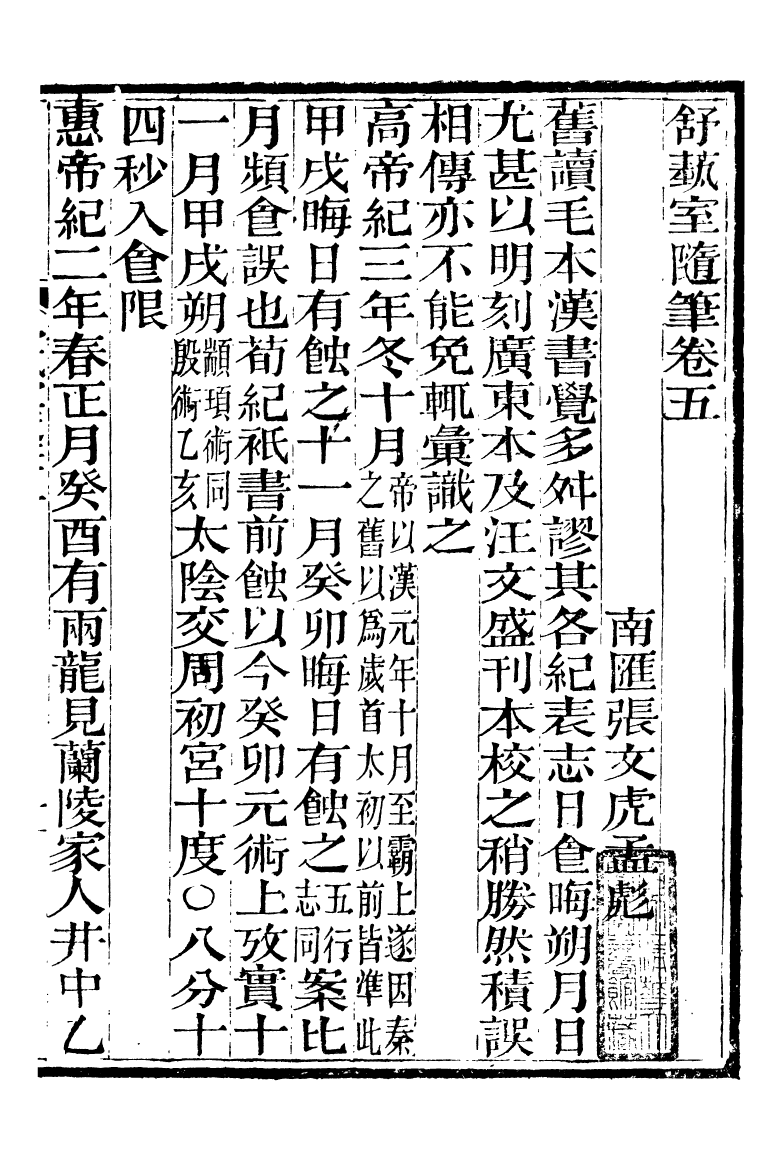 舒蓺室隨筆卷五
南匯張文虎孟彪
舊讀毛本漢書覺多舛謬其各紀表志日食晦朔月日
尤甚以明刻廣東本及汪文盛刊本校之稍勝然積誤
相傳亦不能免輒彙識之
高帝紀三年冬十月帝以漢元年十月至霸上遂因秦之舊以爲歲首太初以前皆準此
甲戌晦日有蝕之十一月癸卯晦日有蝕之五行志同案比
月頻食誤也荀紀祇書前蝕以今癸卯元術上攷實十
一月甲戌朔顓頊術同殷術乙亥太陰交周初宮十度〇八分十
四秒入食限
惠帝紀二年春正月癸酉有兩龍見蘭陵家人井中乙